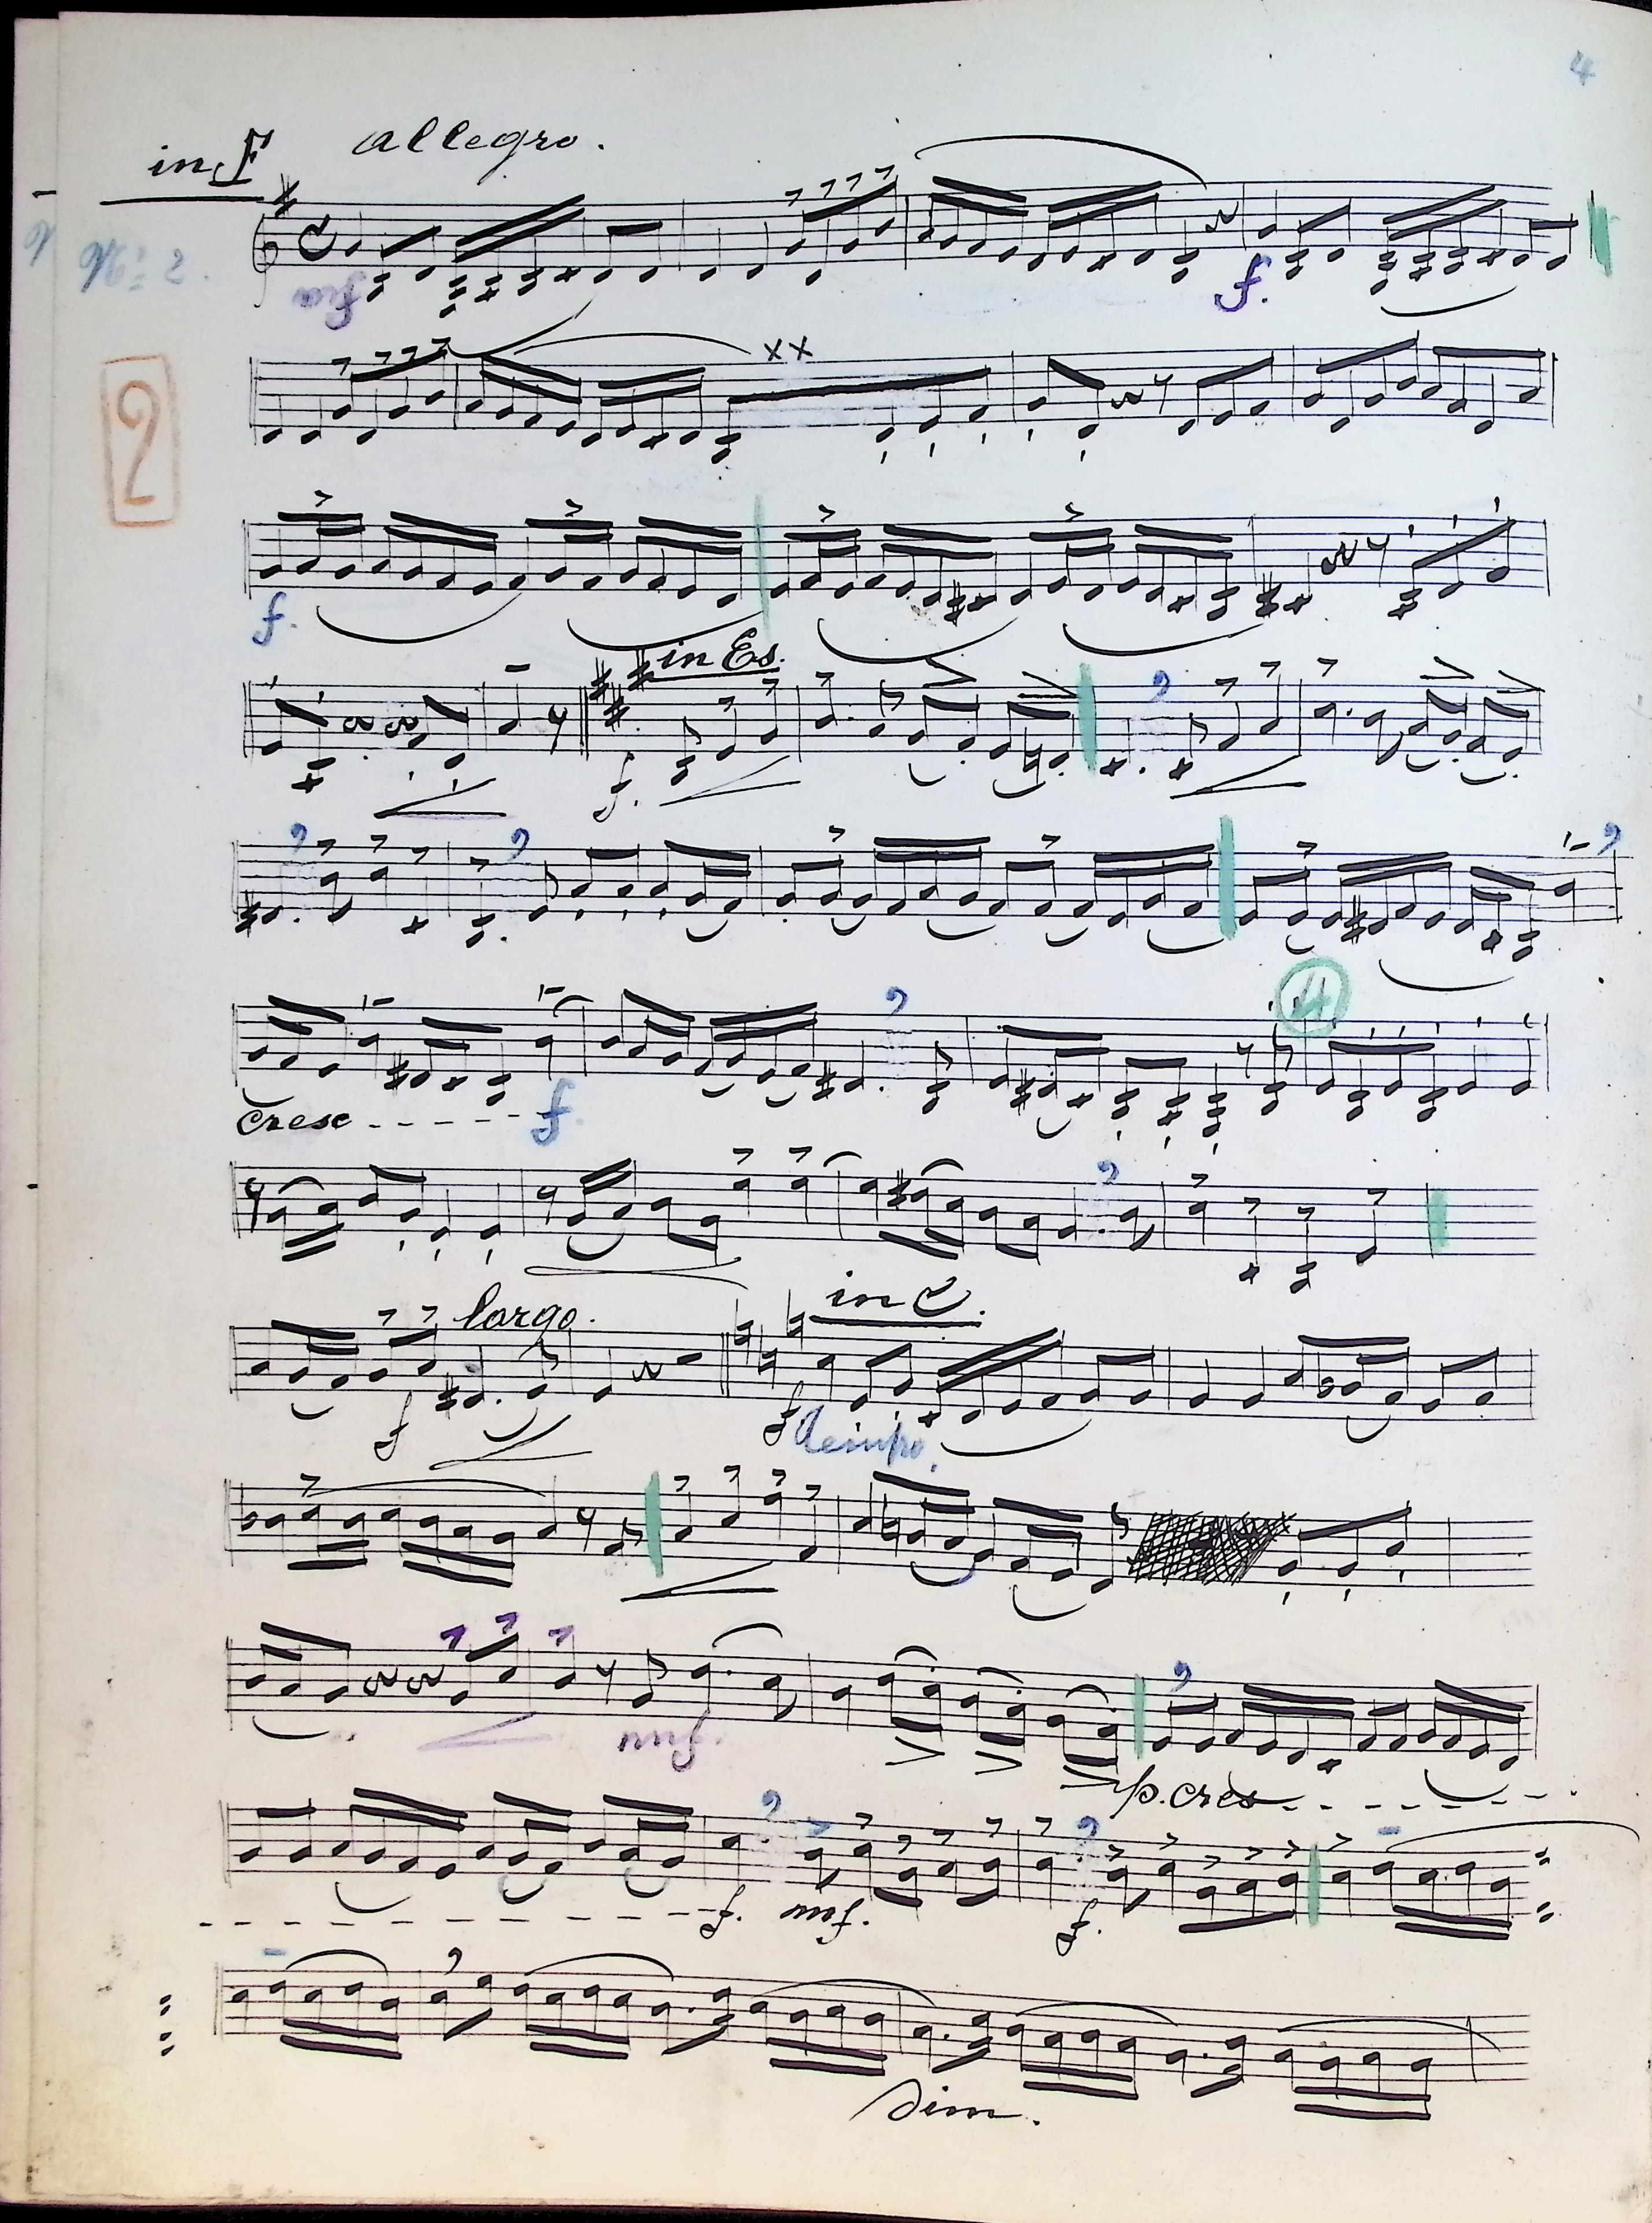 4
in F allegro.
No: 2.
f.
2
xx
f.
in Es.
f.
4
cresc - - - - - f
largo.
in C.
f
f
tempo.
mf.
p. cres - - - - - -
f. mf. f.
Dim.